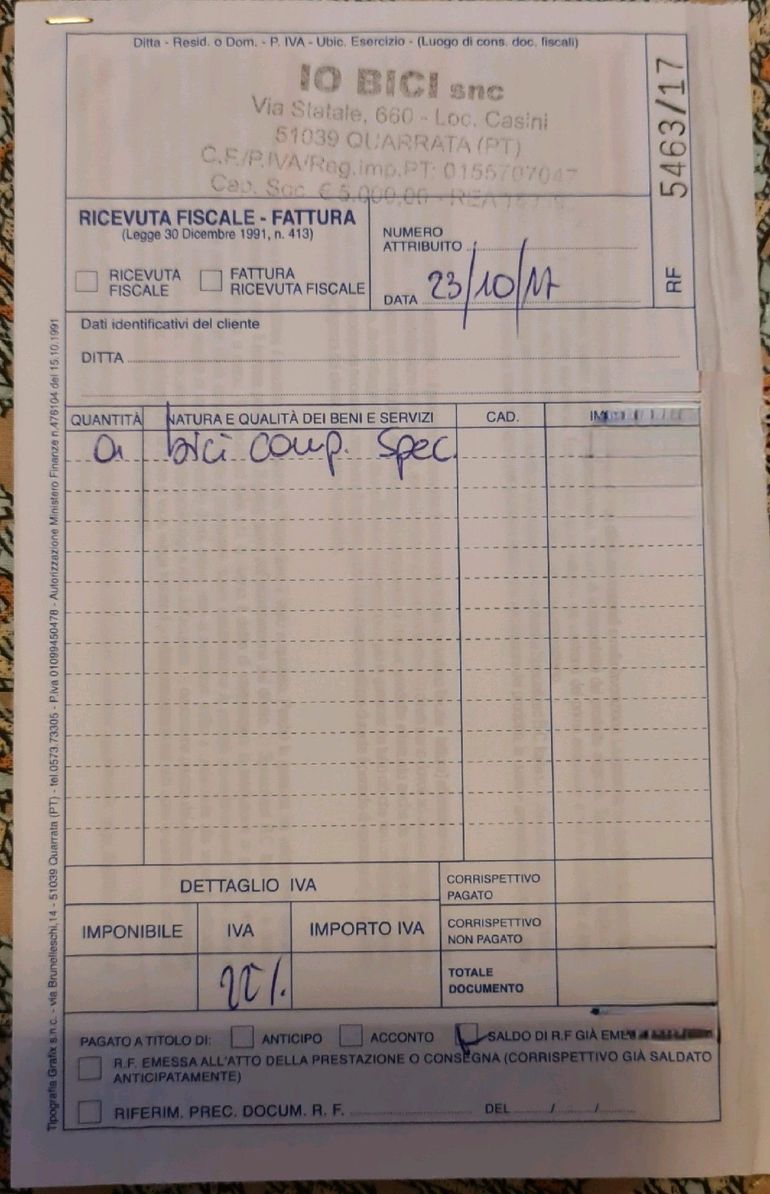 Ditta - Resid. o Dom. - P. IVA - Ubic. Esercizio - (Luogo di cons. doc. fiscali)
IO BICI snc
Via Statale, 660 - Loc. Casini
51039 QUARRATA (PT)
C.F./P.IVA/Reg.imp.PT: 0155707047
Cap. Soc. € 5.000,00 - REA
5463/17
RF
RICEVUTA FISCALE - FATTURA
(Legge 30 Dicembre 1991, n. 413)
RICEVUTA
FISCALE
FATTURA
RICEVUTA FISCALE
NUMERO
ATTRIBUITO
DATA 23/10/17
Dati identificativi del cliente
DITTA
QUANTITÀ NATURA E QUALITÀ DEI BENI E SERVIZI CAD.
bici comp. Spec.
DETTAGLIO IVA
IMPONIBILE IVA IMPORTO IVA
22%
CORRISPETTIVO
PAGATO
CORRISPETTIVO
NON PAGATO
TOTALE
DOCUMENTO
PAGATO A TITOLO DI: ANTICIPO ACCONTO SALDO DI R.F GIÀ
R.F. EMESSA ALL'ATTO DELLA PRESTAZIONE O CONSEGNA (CORRISPETTIVO GIÀ SALDATO
ANTICIPATAMENTE)
RIFERIM. PREC. DOCUM. R. F. DEL / /
Tipografia Grafix s.n.c. - via Brunelleschi,14 - 51039 Quarrata (PT) - tel.0573.73305 - P.iva 01099450478 - Autorizzazione Ministero Finanze n.476104 del 15.10.1991